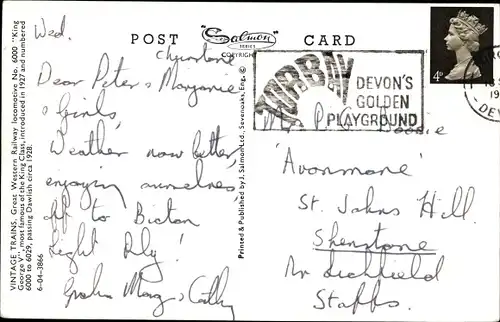 POST "Salmon" SERIES COPYRIGHT CARD
Wed.
Dear Peter & Margaret
& Girls,
Weather now better,
enjoying ourselves,
off to Bicton
Light Rly!
Graham Marg & Cathy
VINTAGE TRAINS. Great Western Railway locomotive No. 6000 "King
George V", most famous of the King Class, introduced in 1927 and numbered
6000 to 6029, passing Dawlish circa 1928.
6-04-3866
Printed & Published by J. Salmon Ltd., Sevenoaks, Eng. ©
TORBAY
DEVON'S
GOLDEN
PLAYGROUND
4D
DEV
'Avonmore'
St. Johns Hill
Shenstone
Nr Lichfield
Staffs.